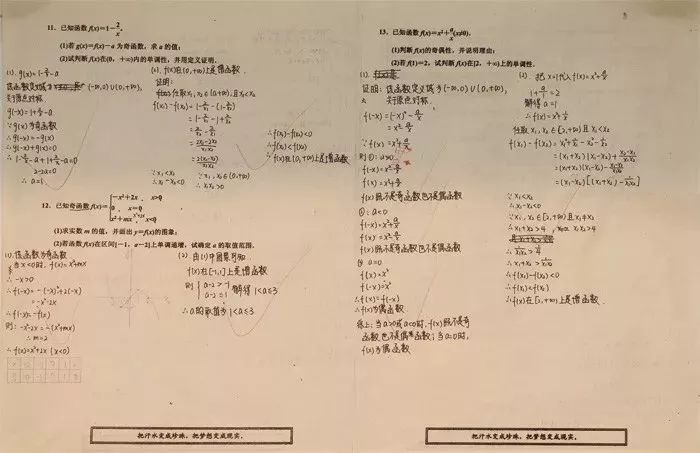 11. 已知函数 f(x)=1-2/x.
(1)若 g(x)=f(x)-a 为奇函数，求 a 的值；
(2)试判断 f(x)在(0，+∞)内的单调性，并用定义证明.
(1). g(x)=1-2/x-a
(-∞,0)∪(0,+∞)
关于原点对称
g(-x)=1+2/x-a
∵g(x)为奇函数
∴g(-x)=-g(x)
∴g(-x)+g(x)=0
∴1-2/x-a+1+2/x-a=0
2-2a=0
∴a=1
(2). f(x)在(0,+∞)上是增函数
证明:
任取x₁,x₂∈(0,+∞)且x₁<x₂
f(x₁)-f(x₂)=(1-2/x₁)-(1-2/x₂)
=2/x₂-2/x₁
=2x₁-2x₂/x₁x₂
=2(x₁-x₂)/x₁x₂
∵x₁<x₂
∴x₁-x₂<0
∵x₁,x₂∈(0,+∞)
∴x₁x₂>0
∴f(x₁)-f(x₂)<0
∴f(x₁)<f(x₂)
∴f(x)在(0,+∞)上是增函数
12. 已知奇函数 f(x)={-x²+2x，x>0
0，x=0
x²+mx，x<0
(1)求实数 m 的值，并画出 y=f(x)的图象；
(2)若函数 f(x)在区间[-1，a-2]上单调递增，试确定 a 的取值范围.
(1). 该函数为奇函数
当x<0时, f(x)=x²+mx
∴-x>0
∴f(-x)=-(-x)²+2(-x)
=-x²-2x
∴f(-x)=-f(x)
则: -x²-2x=-(x²+mx)
∴m=2
∴f(x)=x²+2x (x<0)
(2) 由(1)中图象可知
f(x)在[-1,1]上是增函数
则{a-2>-1
a-2≤1 解得1<a≤3
∴a的取值为1<a≤3
把汗水变成珍珠，把梦想变成现实。
13. 已知函数 f(x)=x²+a/x(x≠0).
(1)判断 f(x)的奇偶性，并说明理由；
(2)若 f(1)=2，试判断 f(x)在[2，+∞)上的单调性.
证明: 该函数定义域为(-∞,0)∪(0,+∞)
关于原点对称
f(-x)=(-x)²-a/x
=x²-a/x
∵f(x)=x²+a/x
则①: a>0
f(-x)=x²-a/x
f(x)=x²+a/x
f(x)既不是奇函数也不是偶函数
②: a<0
f(x)既不是奇函数也不是偶函数
a=0
f(x)=x²
f(-x)=x²
∴f(x)=f(-x)
∴f(x)为偶函数
综上: 当a>0或a<0时, f(x)既不是奇
函数也不是偶函数; 当a=0时,
f(x)为偶函数
(2) 把x=1代入f(x)=x²+a/x
1+a/1=2
解得a=1
∴f(x)=x²+1/x
任取x₁,x₂∈[2,+∞)且x₁<x₂
f(x₁)-f(x₂)=x₁²+1/x₁-x₂²-1/x₂
=(x₁+x₂)(x₁-x₂)+x₂-x₁/x₁x₂
=(x₁+x₂)(x₁-x₂)-x₁-x₂/x₁x₂
=(x₁-x₂)[(x₁+x₂)-1/x₁x₂]
∵x₁<x₂
∴x₁-x₂<0
∵x₁,x₂∈[2,+∞)且x₁≠x₂
∴x₁+x₂>4, x₁x₂>4
∴x₁+x₂>1/x₁x₂
∴f(x₁)-f(x₂)<0
∴f(x₁)<f(x₂)
∴f(x)在[2,+∞)上是增函数.
把汗水变成珍珠，把梦想变成现实。